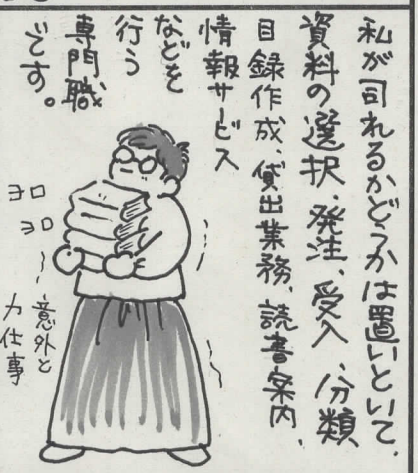 私が司れるかどうかは置いといて、
資料の選択・発注、受入、分類
目録作成、貸出業務、読書案内、
情報サービス
などを
行う
専門職
です。
ヨロ
ヨロ
〜意外と
力仕事